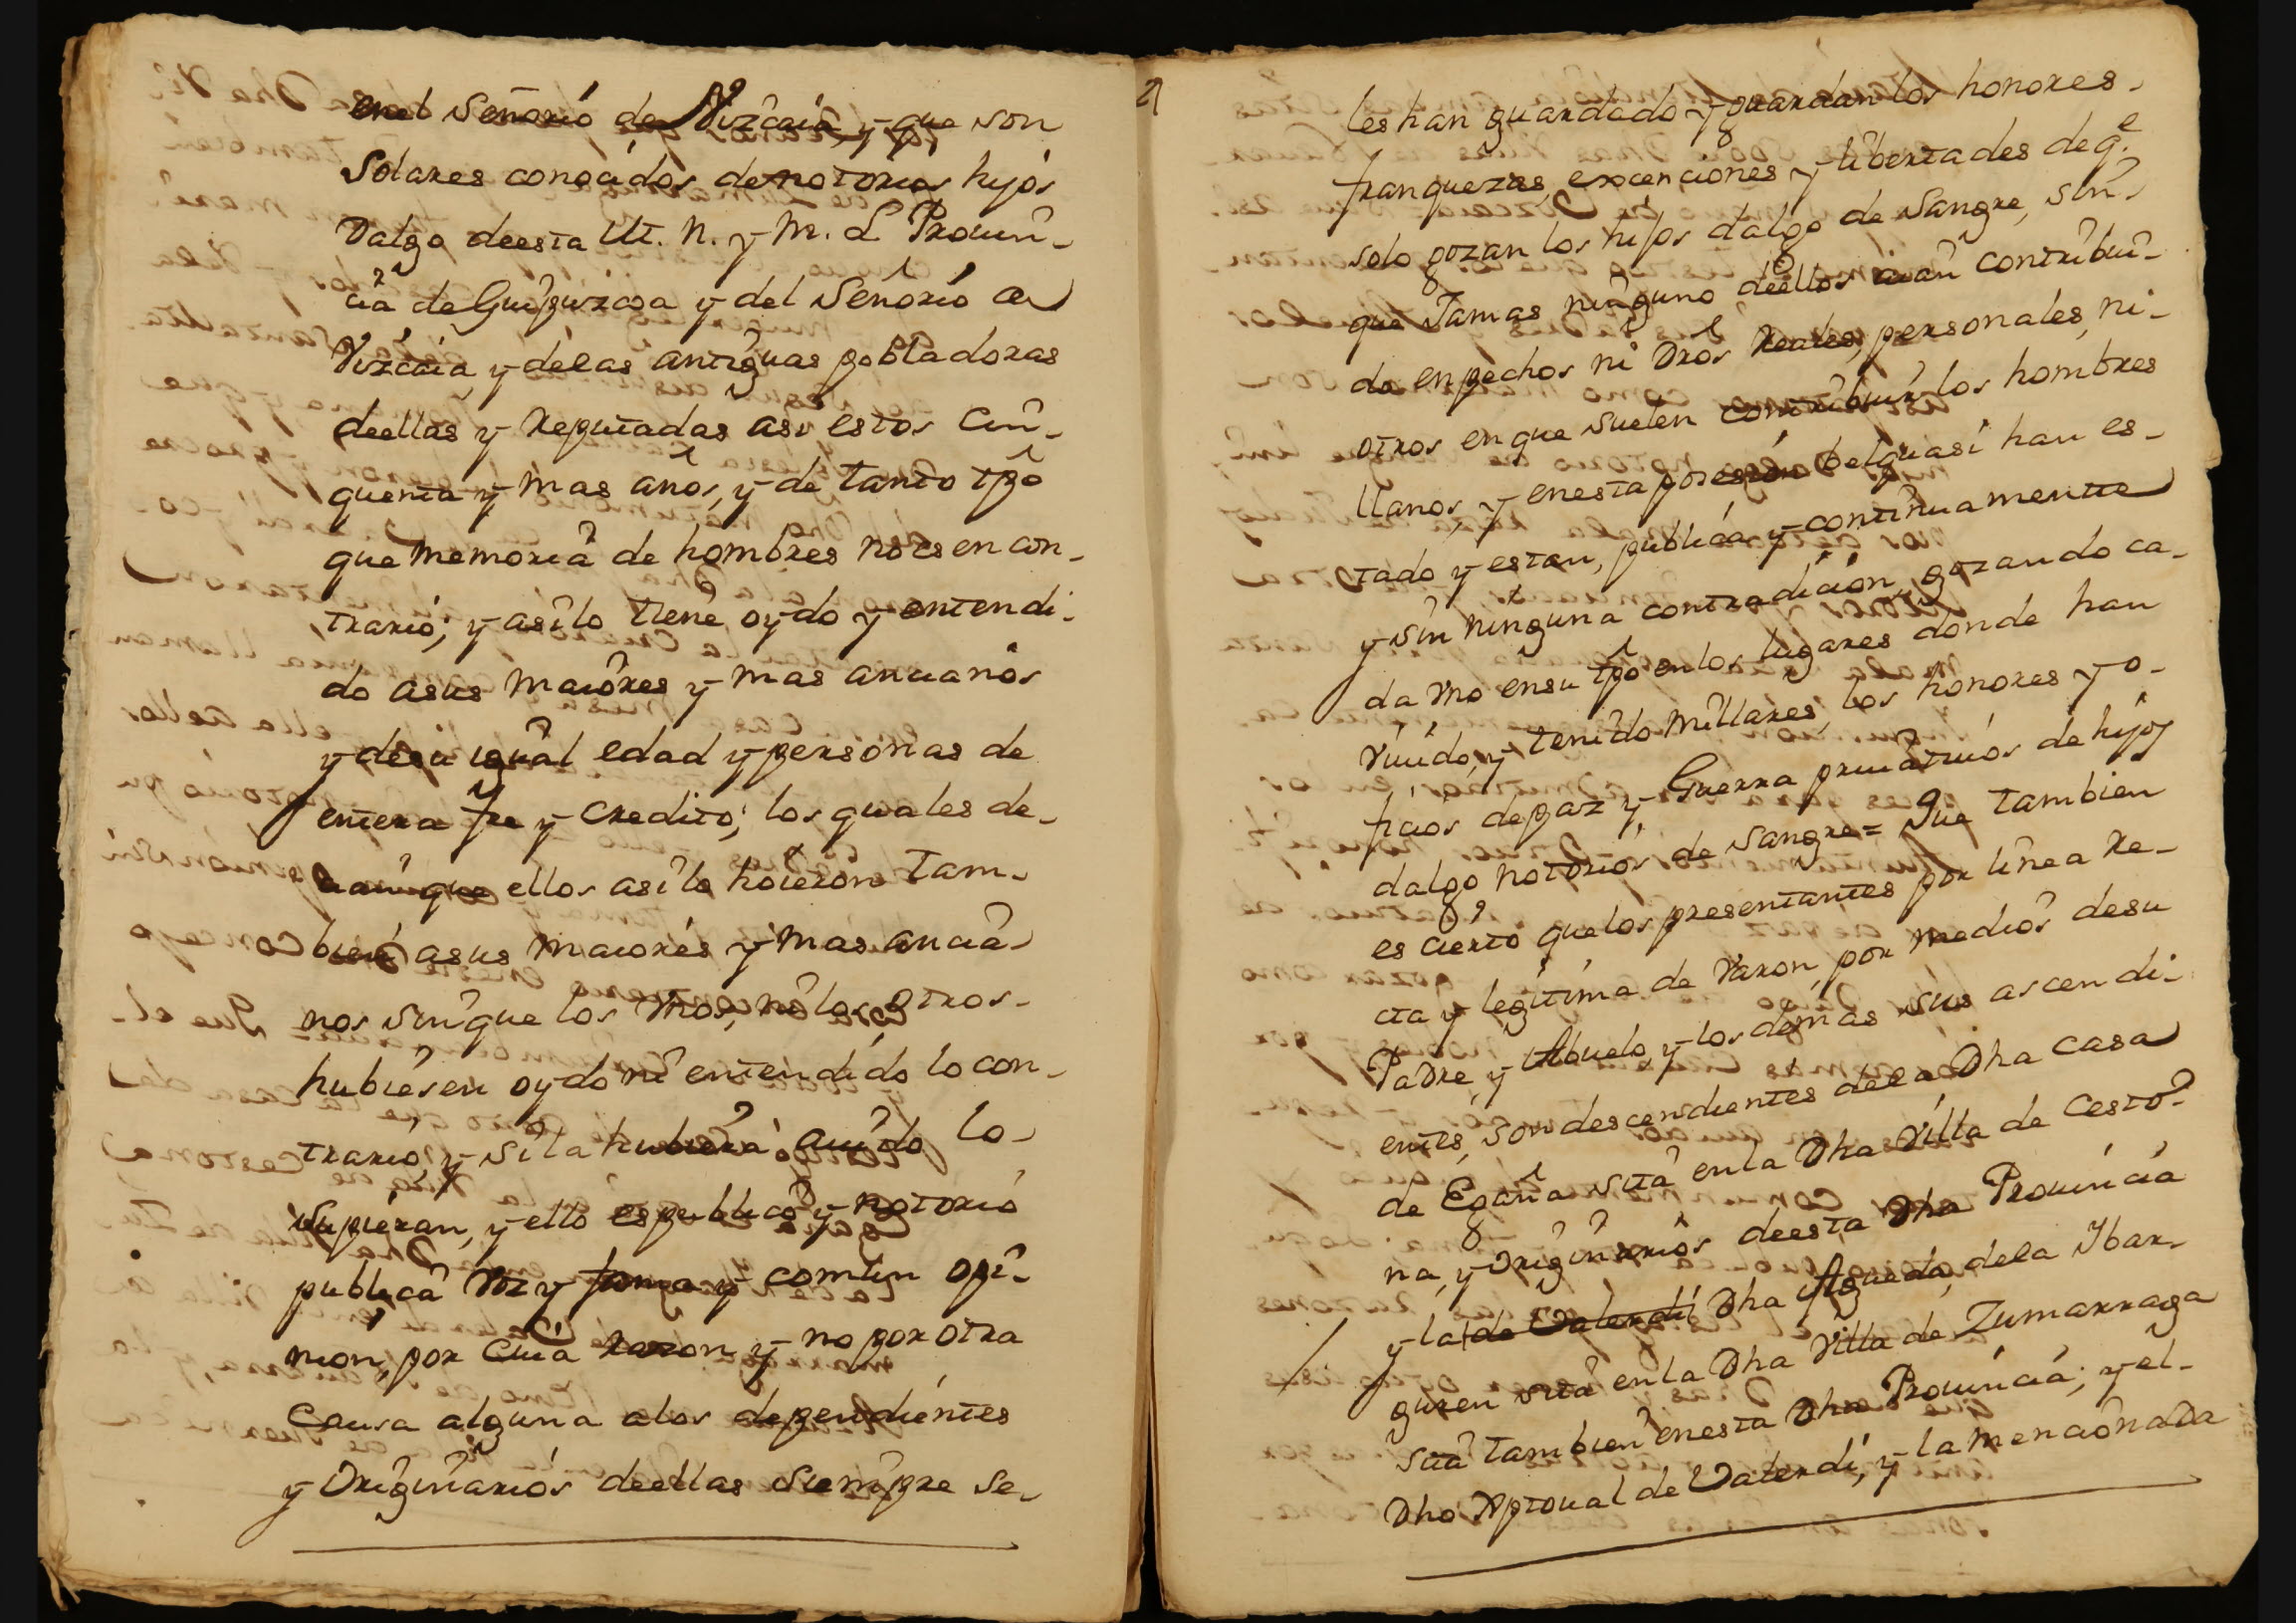 enel Señorio de Vizcaia y que son
Solares conocidos de notorios hijos
Dalgo deesta M. N. y M. L Provin-
cia de Guipuzcoa y del Señorio de
Vizcaia, y delas antiguas pobladoras
deellas y Reputadas asi estos cin-
quenta y mas años, y de tanto tpo
que memoria de hombres no es en con-
trario; y asilo tiene oydo y entendi-
do asus maiores y mas ancianos
y desu igual edad y personas de
entera fee y credito; los quales de-
cian que ellos asilo hoieron tam-
bien asus maiores y mas ancia-
nos sinque los Vnos, ni los otros-
hubiesen oydo ni entendido lo con-
trario, y sila hubiera auido lo-
supieran, y ello espublico y notorio
publica Voz y fama y comun opi-
nion, por Cuia Razon y no por otra
Causa alguna alos dependientes
y Originarios deellas siempre se-
21
les han guardado y guardan los honores-
franquezas, excenciones y libertades de qe.
solo gozan los hijos dalgo de Sangre, sin-
que Jamas ninguno deellos aian contribui-
do en pechos ni Dros Reales, personales, ni-
otros en que suelen contribuir los hombres
llanos, y enesta posesion belquasi han es-
tado y estan, publica y continuamente
y sin ninguna contradicion, gozando ca-
da Vno ensu tpo en los lugares donde han
Viuido, y tenido millares, los honores y o-
ficios de paz y Guerra priuatiuos de hijos
dalgo notorios de Sangre= Que tambien
es cierto quelos presentantes por linea Re-
cta y legitima de Varon, por medios desu
Padre, y Abuelo, y los demas sus ascendi-
entes, son descendientes dela Dha Casa
de Egaña sita en la Dha Villa de Cesto-
na, y Originarios deesta Dha Provincia
y la de Valerdi Dha Agueda, dela Ybar-
guren sita en la Dha Villa de Zumarraga
sita tambien enesta Dha Provincia; y el-
Dho Xptoual de Valerdi, y la mencionada